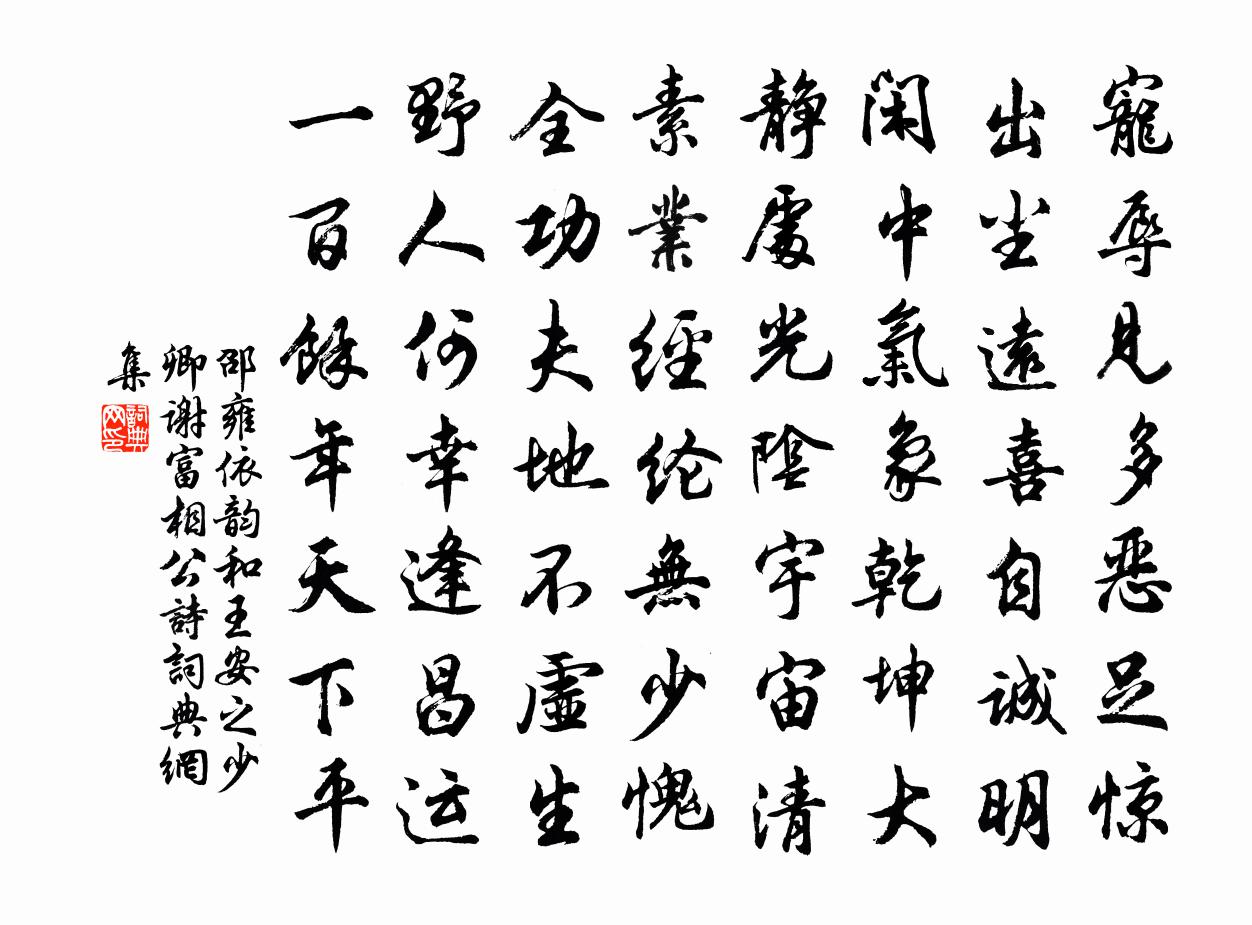 寵辱見多惡足惊
出尘遠喜自誠明
閑中氣象乾坤大
静處光陰宇宙清
素業經纶無少愧
全功夫地不虚生
野人何幸逢昌运
一百餘年天下平
邵雍依韵和王安之少
卿谢富相公詩詞典網
集
詞典
网印